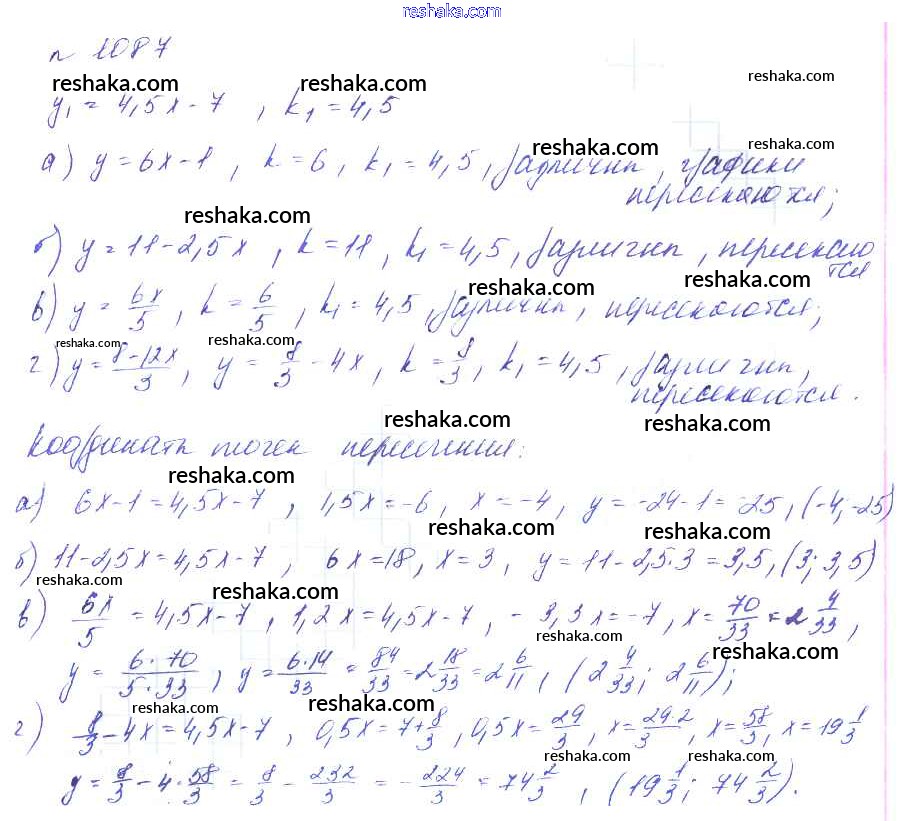 reshaka.com
n 1087
reshaka.com reshaka.com reshaka.com
y₁ = 4,5x - 7 , k₁ = 4,5
reshaka.com reshaka.com
а) y = 6x - 1 , k = 6 , k₁ = 4,5 , различны , графики
пересекаются;
reshaka.com
б) y = 11 - 2,5x , k = 11 , k₁ = 4,5 , различны , пересекаю
тся
reshaka.com reshaka.com
в) y = 6x/5 , k = 6/5 , k₁ = 4,5 , различны , пересекаются;
reshaka.com reshaka.com
г) y = (8-12x)/3 , y = 8/3 - 4x , k = 8/3 , k₁ = 4,5 , различны ,
пересекаются.
reshaka.com reshaka.com
Координаты точек пересечения:
reshaka.com
а) 6x-1 = 4,5x-7 , 1,5x = -6 , x = -4 , y = -24-1 = -25 , (-4; -25)
reshaka.com reshaka.com
б) 11-2,5x = 4,5x-7 , 6x = 18 , x = 3 , y = 11-2,5·3 = 3,5 , (3; 3,5)
reshaka.com reshaka.com
в) 6x/5 = 4,5x-7 , 1,2x = 4,5x-7 , -3,3x = -7 , x = 70/33 = 2 4/33 ,
reshaka.com reshaka.com
y = 6·70/5·33 , y = 6·14/33 = 84/33 = 2 18/33 = 2 6/11 , (2 4/33; 2 6/11);
reshaka.com
г) 8/3 - 4x = 4,5x-7 , 0,5x = 7+8/3 , 0,5x = 29/3 , x = 29·2/3 , x = 58/3 , x = 19 1/3
reshaka.com reshaka.com
y = 8/3 - 4·58/3 = 8/3 - 232/3 = -224/3 = 74 2/3 , (19 1/3; 74 2/3).